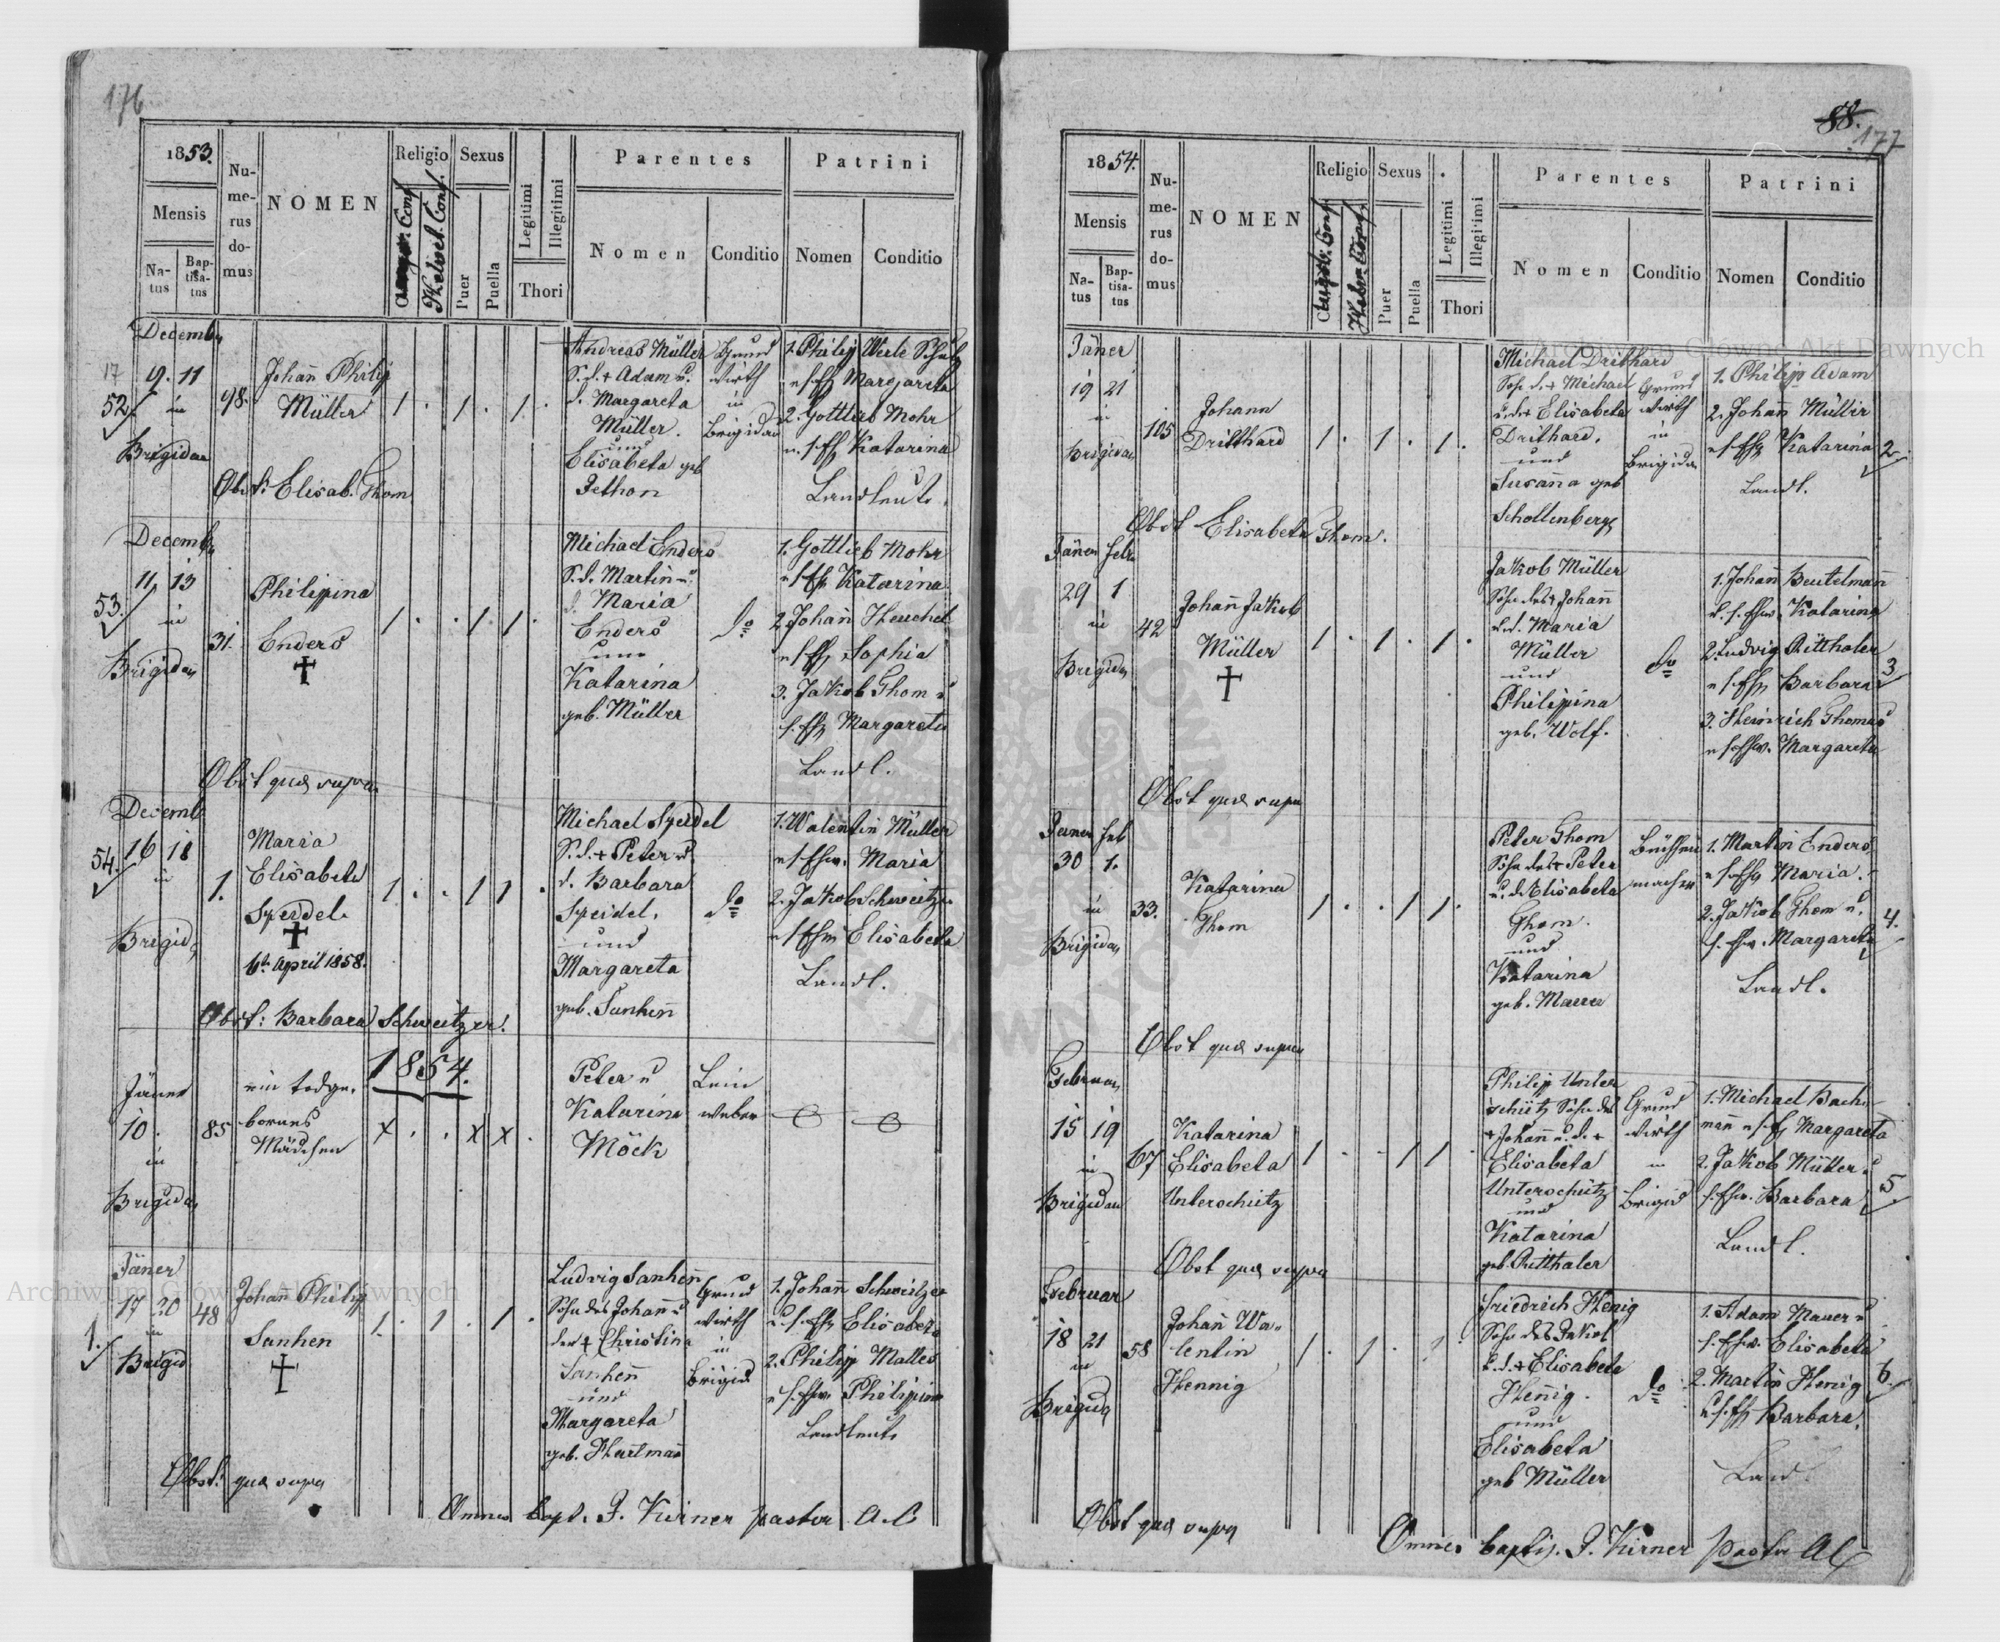 176
1853.
Mensis
Na-
tus
Bap-
tisa-
tus
Nu-
me-
rus
do-
mus
NOMEN
Religio
Helvet. Conf.
Sexus
Puer
Puella
Legitimi
Illegitimi
Thori
Parentes
Nomen
Conditio
Patrini
Nomen
Conditio
Decemb
17
52.
9. 11
in
Brigidau
98.
Johann Philip
Müller
1 . 1 . 1 .
Andreas Müller
S. d. + Adam u.
d. Margareta
Müller.
und
Elisabeta geb
Jethon
Grund
wirth
in
Brigidau
1. Philip Werle Schulz
Margareta
2. Gottlieb Mohr
Katarina
Landleute.
Obst: Elisab. Thom
Decemb
53.
11, 13
in
Brigidau
31.
Philippina
Enders
1 . . 1 1 .
Michael Enders
S. d. Martin u.
d. Maria
Enders
und
Katarina
geb. Müller
do
1. Gottlieb Mohr
Katarina
2. Johann Heuchel
Sophia
3. Jakob Thom u
Margareta
Landl.
Obst quae supra
Decemb
54.
16 18
in
Brigid
1.
Maria
Elisabeta
Speidel
6t April 1858.
1 . . 1 1 .
Michael Speidel
S. d. + Peter u
d. Barbara
Speidel.
und
Margareta
geb. Sanhen
do
1. Valentin Müller
Maria
2. Jakob Schweitzer
Elisabeta
Landl.
Obst: Barbara Schweitzer.
1854.
Jäner
10.
in
Brigidau
85
ein todge-
bornes
Mädchen
x . . x x .
Peter u
Katarina
Möck
Lein
weber
Jäner
1.
17 20
in
Brigid
48
Johann Philip
Sanhen
1. . 1 . 1 .
Ludwig Sanhen
Sohn des Johann u
der + Christina
Sanhen
und
Margareta
geb. Hartmann
Grund
wirth
in
Brigid
1. Johann Schweitzer
Elisabeta
2. Philip Malles
Philipina
Landleute
Obst: quae supra
Omnes bapt. J. Kirner pastor A. C.
88.
177
1854.
Mensis
Na-
tus
Bap-
tisa-
tus
Nu-
me-
rus
do-
mus
NOMEN
Religio
Sexus
Puer
Puella
Legitimi
Illegitimi
Thori
Parentes
Nomen
Conditio
Patrini
Nomen
Conditio
Archiwum Główne Akt Dawnych
Jäner
19 21
in
Brigidau
105
Johann
Drithard
1 . 1 . 1 .
Michael Drithard
Sohn d. + Michael
u. d + Elisabeta
Drithard.
und
Susanna geb
Schollenberg
Grund
wirth
in
Brigidau
1. Philip Adam
2. Johann Müller
Katarina
Landl.
2
Obst Elisabeta Thom.
Jäner Febr
29 1
in
Brigidau
42
Johann Jakob
Müller
1 . 1 . 1 .
Jakob Müller
Sohn des + Johann
u. d. Maria
Müller
und
Philippina
geb. Wolf.
do
1. Johann Beutelmann
Katarina
2. Ludwig Ritthaler
Barbara
3. Heinrich Thomas
Margareta
3
Obst quae supra
Jäner Feb
30 1.
in
Brigidau
33.
Katarina
Thom
1 . . 1 1 .
Peter Thom
Sohn des + Peter
u. d. Elisabeta
Thom.
und
Katarina
geb. Mauer
Büchsen
macher
1. Martin Enders,
Maria.
2. Jakob Thom u.
Margareta
Landl.
4.
Obst quae supra
Februar
15 19
in
Brigidau
67
Katarina
Elisabeta
Unterschütz
1 . . 1 1 .
Philip Unter
schütz Sohn des
+ Johann u. d. +
Elisabeta
Unterschütz
und
Katarina
geb. Ritthaler
Grund
wirth
in
Brigid
1. Michael Bach-
mann Margareta
2. Jakob Müller u
Barbara
Landl.
5.
Obst quae supra
Archiwum Główne Akt Dawnych
Februar
18 21
in
Brigid
58
Johann Va-
lentin
Hennig
1 . 1 . 1
Friedrich Henig
Sohn des Jakob
u. d. + Elisabeta
Hennig.
und
Elisabeta
geb Müller
do
1. Adam Mauer u
Elisabeta
2. Martin Henig
Barbara.
Land
6.
Obst quae supra
Omnes baptiz. J. Kirner pastor AC